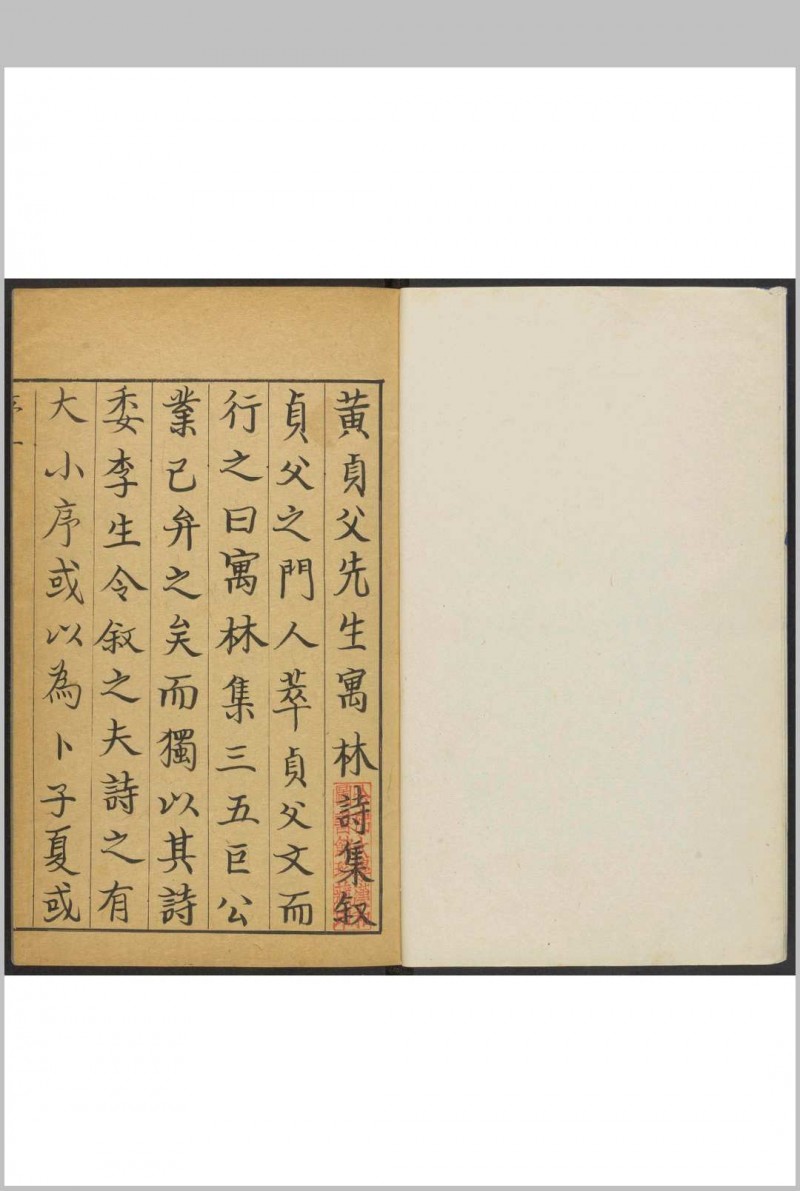 黃貞父先生寓林詩集叙
貞父之門人萃貞父文而
行之曰寓林集三五巨公
業已弁之矣而獨以其詩
委李生令叙之夫詩之有
大小序或以為卜子夏或
序一